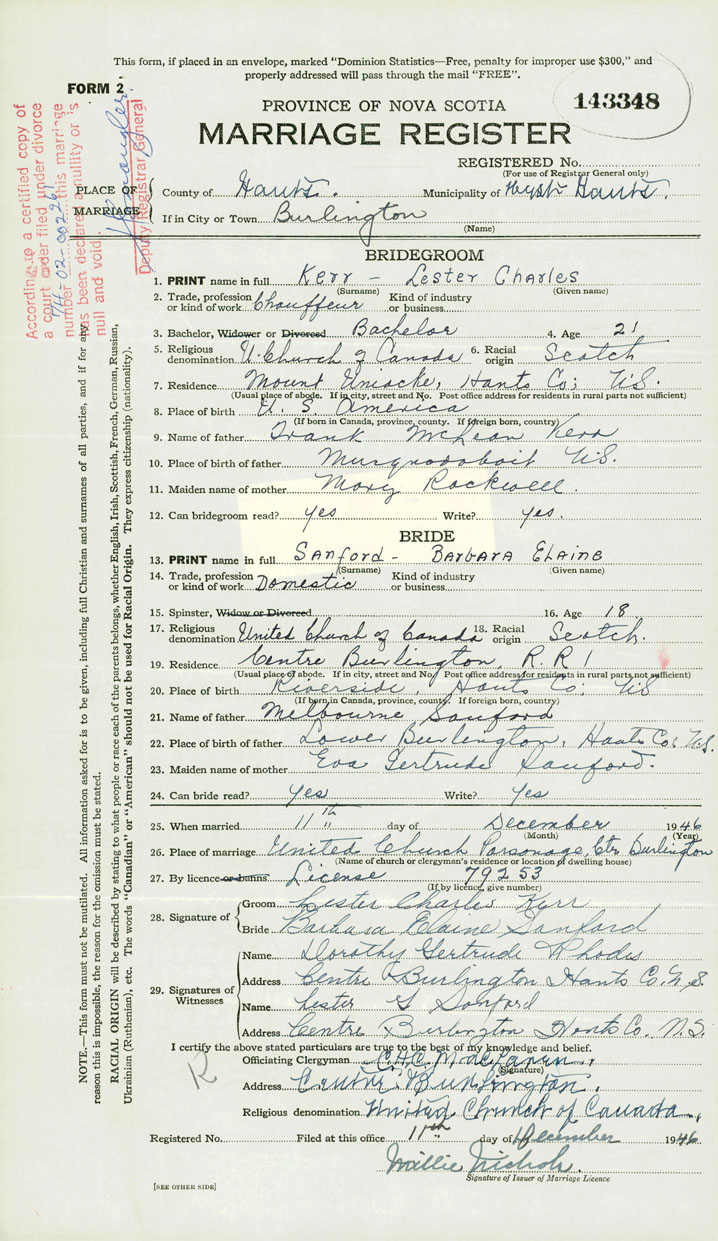 This form, if placed in an envelope, marked "Dominion Statistics—Free, penalty for improper use $300," and
properly addressed will pass through the mail "FREE".
FORM 2
143348
PROVINCE OF NOVA SCOTIA
MARRIAGE REGISTER
REGISTERED No.
(For use of Registrar General only)
PLACE OF
MARRIAGE
County of Hants. Municipality of West Hants.
If in City or Town Burlington
(Name)
According to a certified copy of
a court order filed under divorce
number this marriage
has been declared a nullity or is
null and void.
Deputy Registrar General
BRIDEGROOM
1. PRINT name in full Kerr - Lester Charles
(Surname) (Given name)
2. Trade, profession or kind of work Chauffeur Kind of industry or business
3. Bachelor, Widower or Divorced Bachelor 4. Age 21
5. Religious denomination U. Church of Canada 6. Racial origin Scotch
7. Residence Mount Uniacke, Hants Co; N.S.
(Usual place of abode. If in city, street and No. Post office address for residents in rural parts not sufficient)
8. Place of birth U. S. America
(If born in Canada, province, county. If foreign born, country)
9. Name of father Frank McLean Kerr
10. Place of father N.S.
11. Maiden name of mother Mary Rockwell.
12. Can bridegroom read? yes Write? yes.
BRIDE
13. PRINT name in full Sanford - Barbara Elaine
(Surname) (Given name)
14. Trade, profession or kind of work Domestic Kind of industry or business
15. Spinster, Widow or Divorced 16. Age 18
17. Religious denomination United Church of Canada 18. Racial origin Scotch.
19. Residence Centre Burlington, R.R 1
(Usual place of abode. If in city, street and No. Post office address for residents in rural parts not sufficient)
20. Place of birth Riverside, Hants Co; NS
(If born in Canada, province, county. If foreign born, country)
21. Name of father Melbourne Sanford
22. Place of birth of father Lower Burlington, Hants Co; N.S.
23. Maiden name of mother Eva Gertrude Sanford.
24. Can bride read? yes Write? yes
25. When married 11th day of December 1946
(Month) (Year)
26. Place of marriage United Church Parsonage, Ctr Burlington
(Name of church or clergyman's residence or location of dwelling house)
27. By licence or banns License 79253
(If by licence, give number)
28. Signature of
Groom Lester Charles Kerr
Bride Barbara Elaine Sanford
29. Signatures of Witnesses
Name Dorothy Gertrude Rhodes
Address Centre Burlington Hants Co. N.S.
Name Lester G Sanford
Address Centre Burlington Hants Co. N.S.
I certify the above stated particulars are true to the best of my knowledge and belief.
R
Officiating Clergyman
(Signature)
Address Centre Burlington.
Religious denomination United Church of Canada.
Registered No. Filed at this office 11th day of December 1946
Millie Nichols.
Signature of Issuer of Marriage Licence
[SEE OTHER SIDE]
NOTE.—This form must not be mutilated. All information asked for is to be given, including full Christian and surnames of all parties, and if for any
reason this is impossible, the reason for the omission must be stated.
RACIAL ORIGIN will be described by stating to what people or race each of the parents belongs, whether English, Irish, Scottish, French, German, Russian,
Ukrainian (Ruthenian), etc. The words "Canadian" or "American" should not be used for Racial Origin. They express citizenship (nationality).